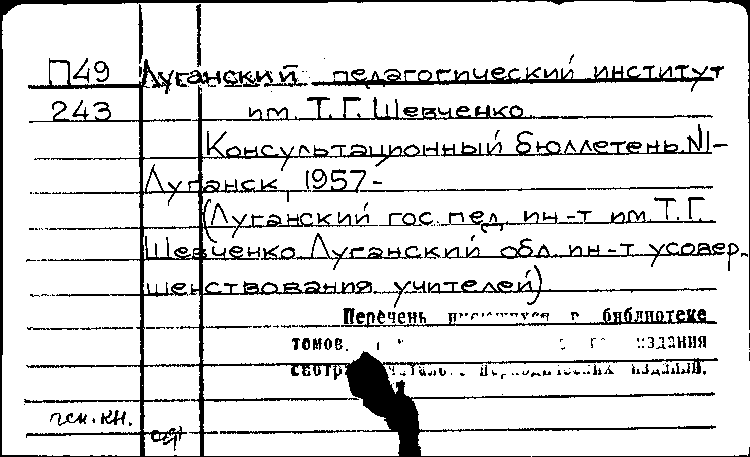 П49 Луганский педагогический институт
243 им. Т.Г. Шевченко.
Консультационный бюллетень. №1-
Луганск, 1957-
(Луганский гос. пед. ин-т им. Т.Г.
Шевченко. Луганский обл. ин-т усовер-
шенствования учителей)
Перечень имеющихся в библиотеке
томов, издания
периодических изданий.